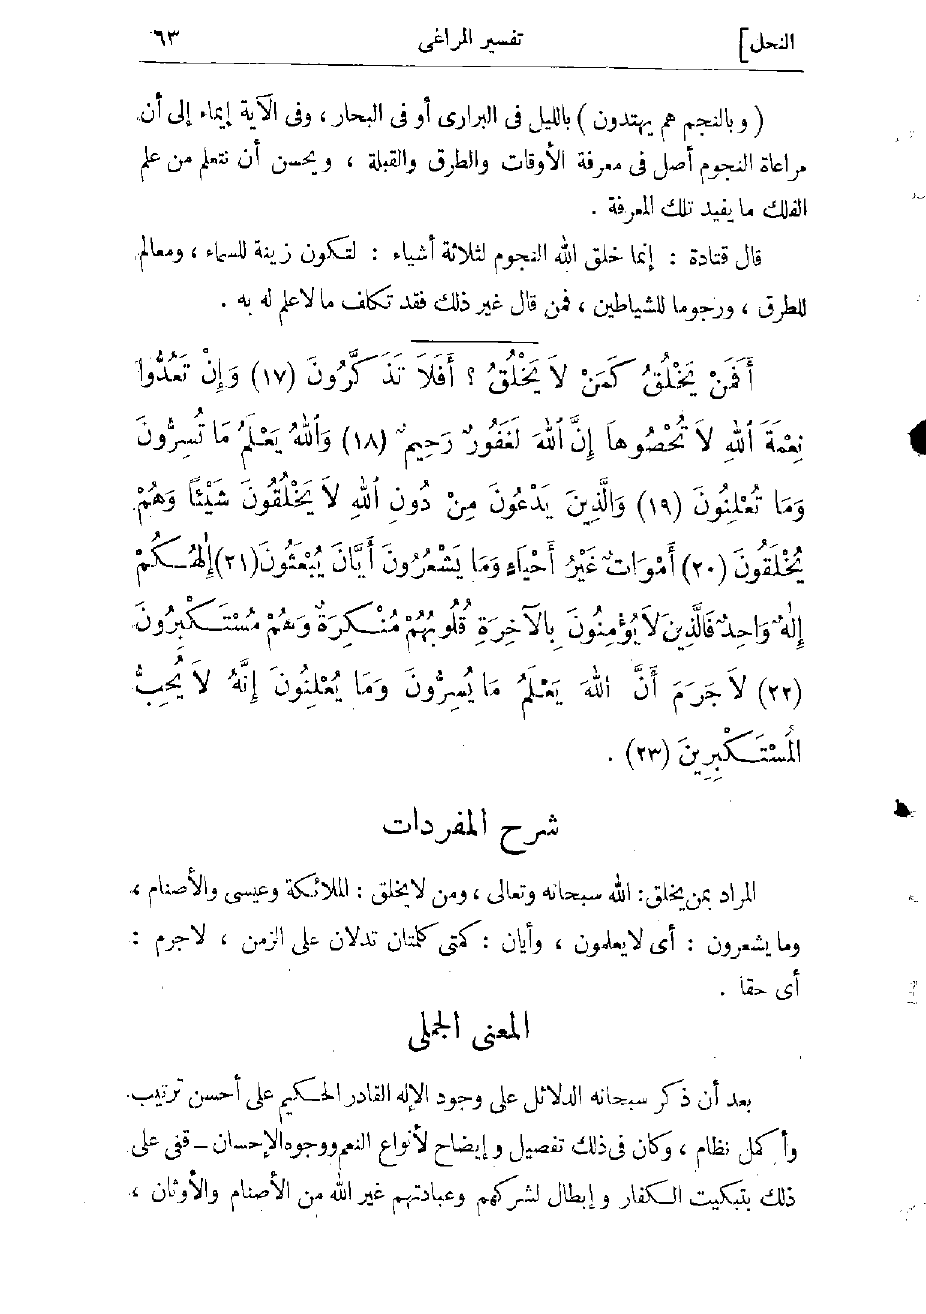 النحل] تفسير المراغى ٦٣
( وبالنجم هم يهتدون ) بالليل فى البرارى أو فى البحار ، وفى الآية إيماء إلى أن
مراعاة النجوم أصل فى معرفة الأوقات والطرق والقبلة ، ويحسن أن نتعلم من علم
الفلك ما يفيد تلك المعرفة .
قال قتادة : إنما خلق الله النجوم لثلاثة أشياء : لتكون زينة للسماء ، ومعالم
للطرق ، ورجوما للشياطين ، فمن قال غير ذلك فقد تكلف ما لا علم له به .
أَفَمَنْ يَخْلُقُ كَمَنْ لاَ يَخْلُقُ ؟ أَفَلاَ تَذَكَّرُونَ (١٧) وَإِنْ تَعُدُّوا
نِعْمَةَ اللهِ لاَ تُحْصُوهاَ إِنَّ اللهَ لَغَفُورٌ رَحِيمٌ (١٨) وَاللهُ يَعْلَمُ مَا تُسِرُّونَ
وَمَا تُعْلِنُونَ (١٩) وَالَّذِينَ يَدْعُونَ مِنْ دُونِ اللهِ لاَ يَخْلُقُونَ شَيْئًا وَهُمْ
يُخْلَقُونَ (٢٠) أَمْوَاتٌ غَيْرُ أَحْيَاءٍ وَمَا يَشْعُرُونَ أَيَّانَ يُبْعَثُونَ (٢١) إِلٰهُكُمْ
إِلٰهٌ وَاحِدٌ فَالَّذِينَ لاَ يُؤْمِنُونَ بِالآخِرَةِ قُلُوبُهُمْ مُنْكِرَةٌ وَهُمْ مُسْتَكْبِرُونَ
(٢٢) لاَ جَرَمَ أَنَّ اللهَ يَعْلَمُ مَا يُسِرُّونَ وَمَا يُعْلِنُونَ إِنَّهُ لاَ يُحِبُّ
الْمُسْتَكْبِرِينَ (٢٣) .
شرح المفردات
المراد بمن يخلق : الله سبحانه وتعالى ، ومن لا يخلق : الملائكة وعيسى والأصنام ،
وما يشعرون : أى لا يعلمون ، وأيان : كمتى كلمتان تدلان على الزمن ، لا جرم :
أى حقا .
المعنى الجملى
بعد أن ذكر سبحانه الدلائل على وجود الإله القادر الحكيم على أحسن ترتيب
وأكمل نظام ، وكان فى ذلك تفصيل وإيضاح لأنواع النعم ووجوه الإحسان – قفى على
ذلك بتبكيت الكفار وإبطال لشركهم وعبادتهم غير الله من الأصنام والأوثان ،